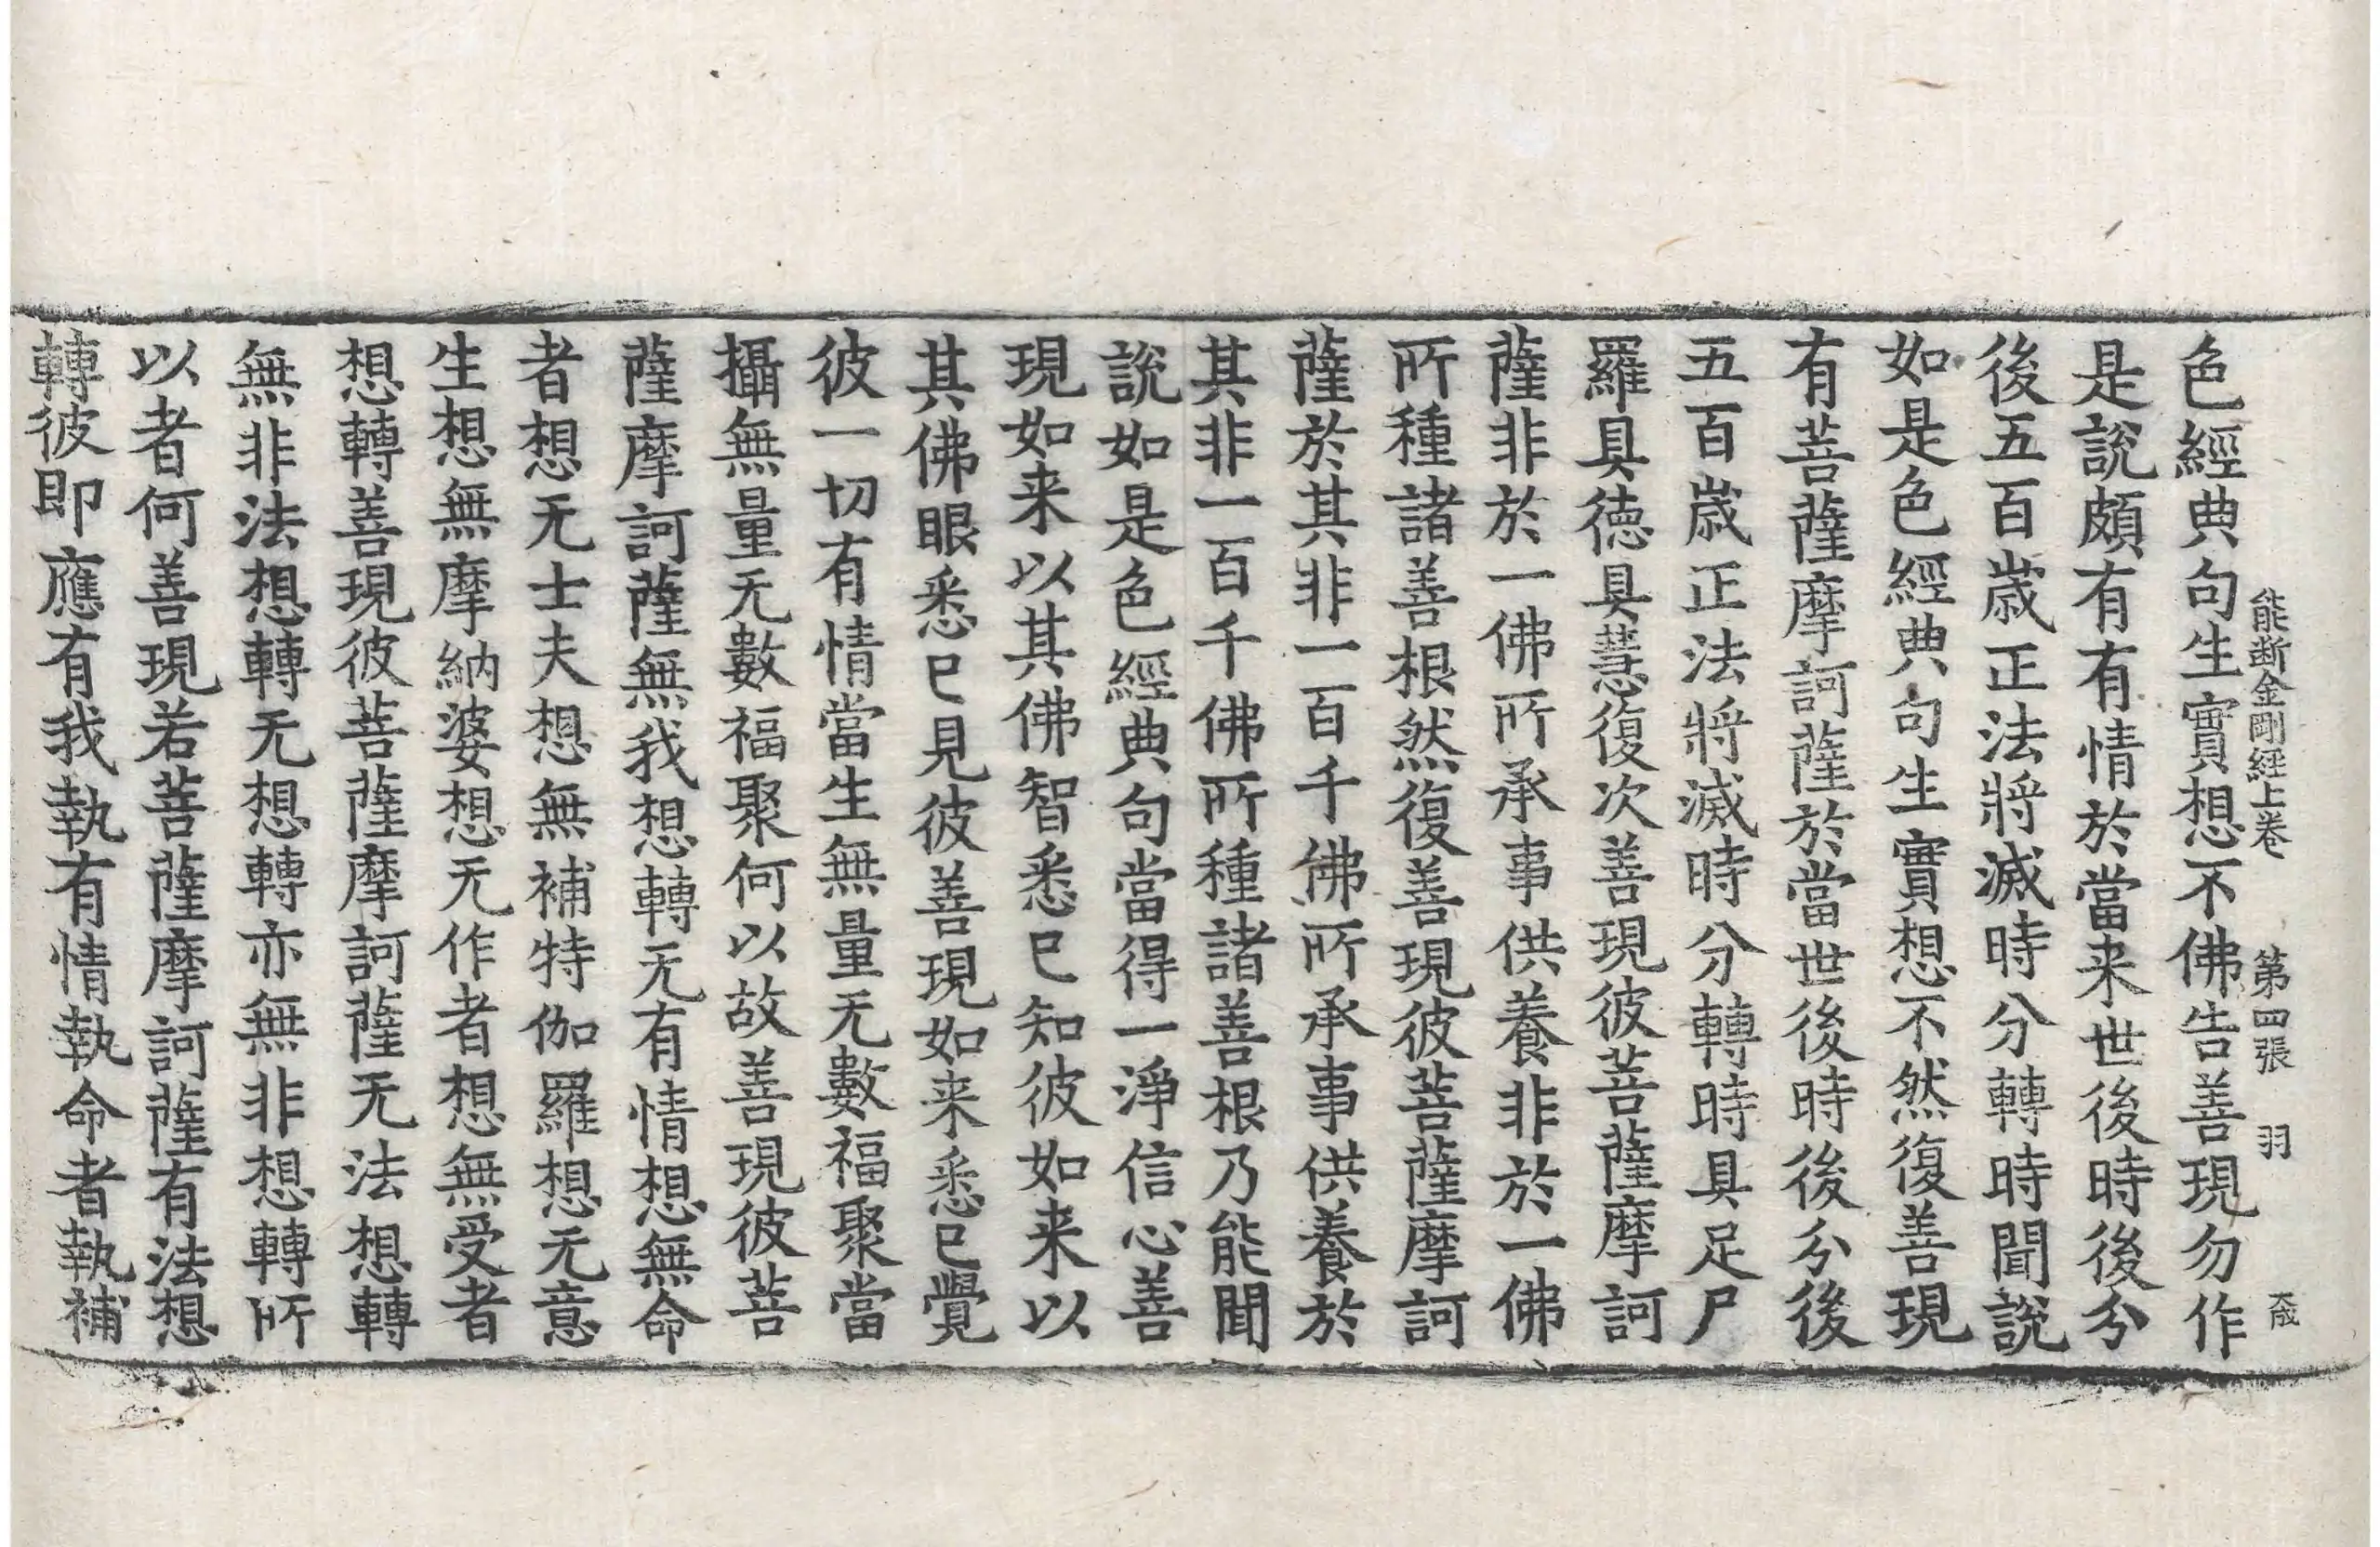 能断金剛經上卷 第四張 羽 大藏
色經典句生實想不佛告善現勿作
是說頗有有情於當来世後時後分
後五百歲正法將滅時分轉時聞說
如是色經典句生實想不然復善現
有菩薩摩訶薩於當世後時後分後
五百歲正法將滅時分轉時具足尸
羅具德具慧復次善現彼菩薩摩訶
薩非於一佛所承事供養非於一佛
所種諸善根然復善現彼菩薩摩訶
薩於其非一百千佛所承事供養於
其非一百千佛所種諸善根乃能聞
說如是色經典句當得一淨信心善
現如来以其佛智悉已知彼如来以
其佛眼悉已見彼善現如来悉已覺
彼一切有情當生無量无數福聚當
攝無量无數福聚何以故善現彼菩
薩摩訶薩無我想轉无有情想無命
者想无士夫想無補特伽羅想无意
生想無摩納婆想无作者想無受者
想轉善現彼菩薩摩訶薩无法想轉
無非法想轉无想轉亦無非想轉所
以者何善現若菩薩摩訶薩有法想
轉彼即應有我執有情執命者執補